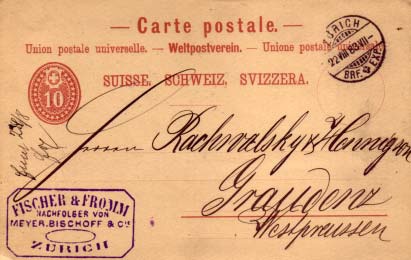 — Carte postale. —
Union postale universelle. — Weltpostverein. — Unione postale universale.
SUISSE. SCHWEIZ. SVIZZERA.
ZÜRICH
22 VIII 83 VIII–
BRF. EXP.
10
Herren Rachwalsky & Hennig
Graudenz
Westpreussen
FISCHER & FROMM
NACHFOLGER VON
MEYER, BISCHOFF & Cie
ZÜRICH